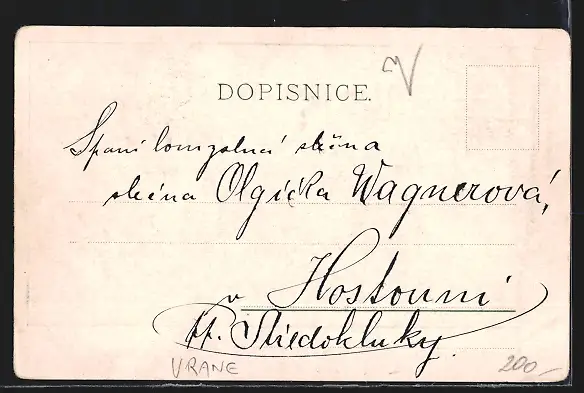 DOPISNICE.
slečna
slečna Olgička Wagnerová,
v Hostouni
Středokluky.
VRANE
200,-